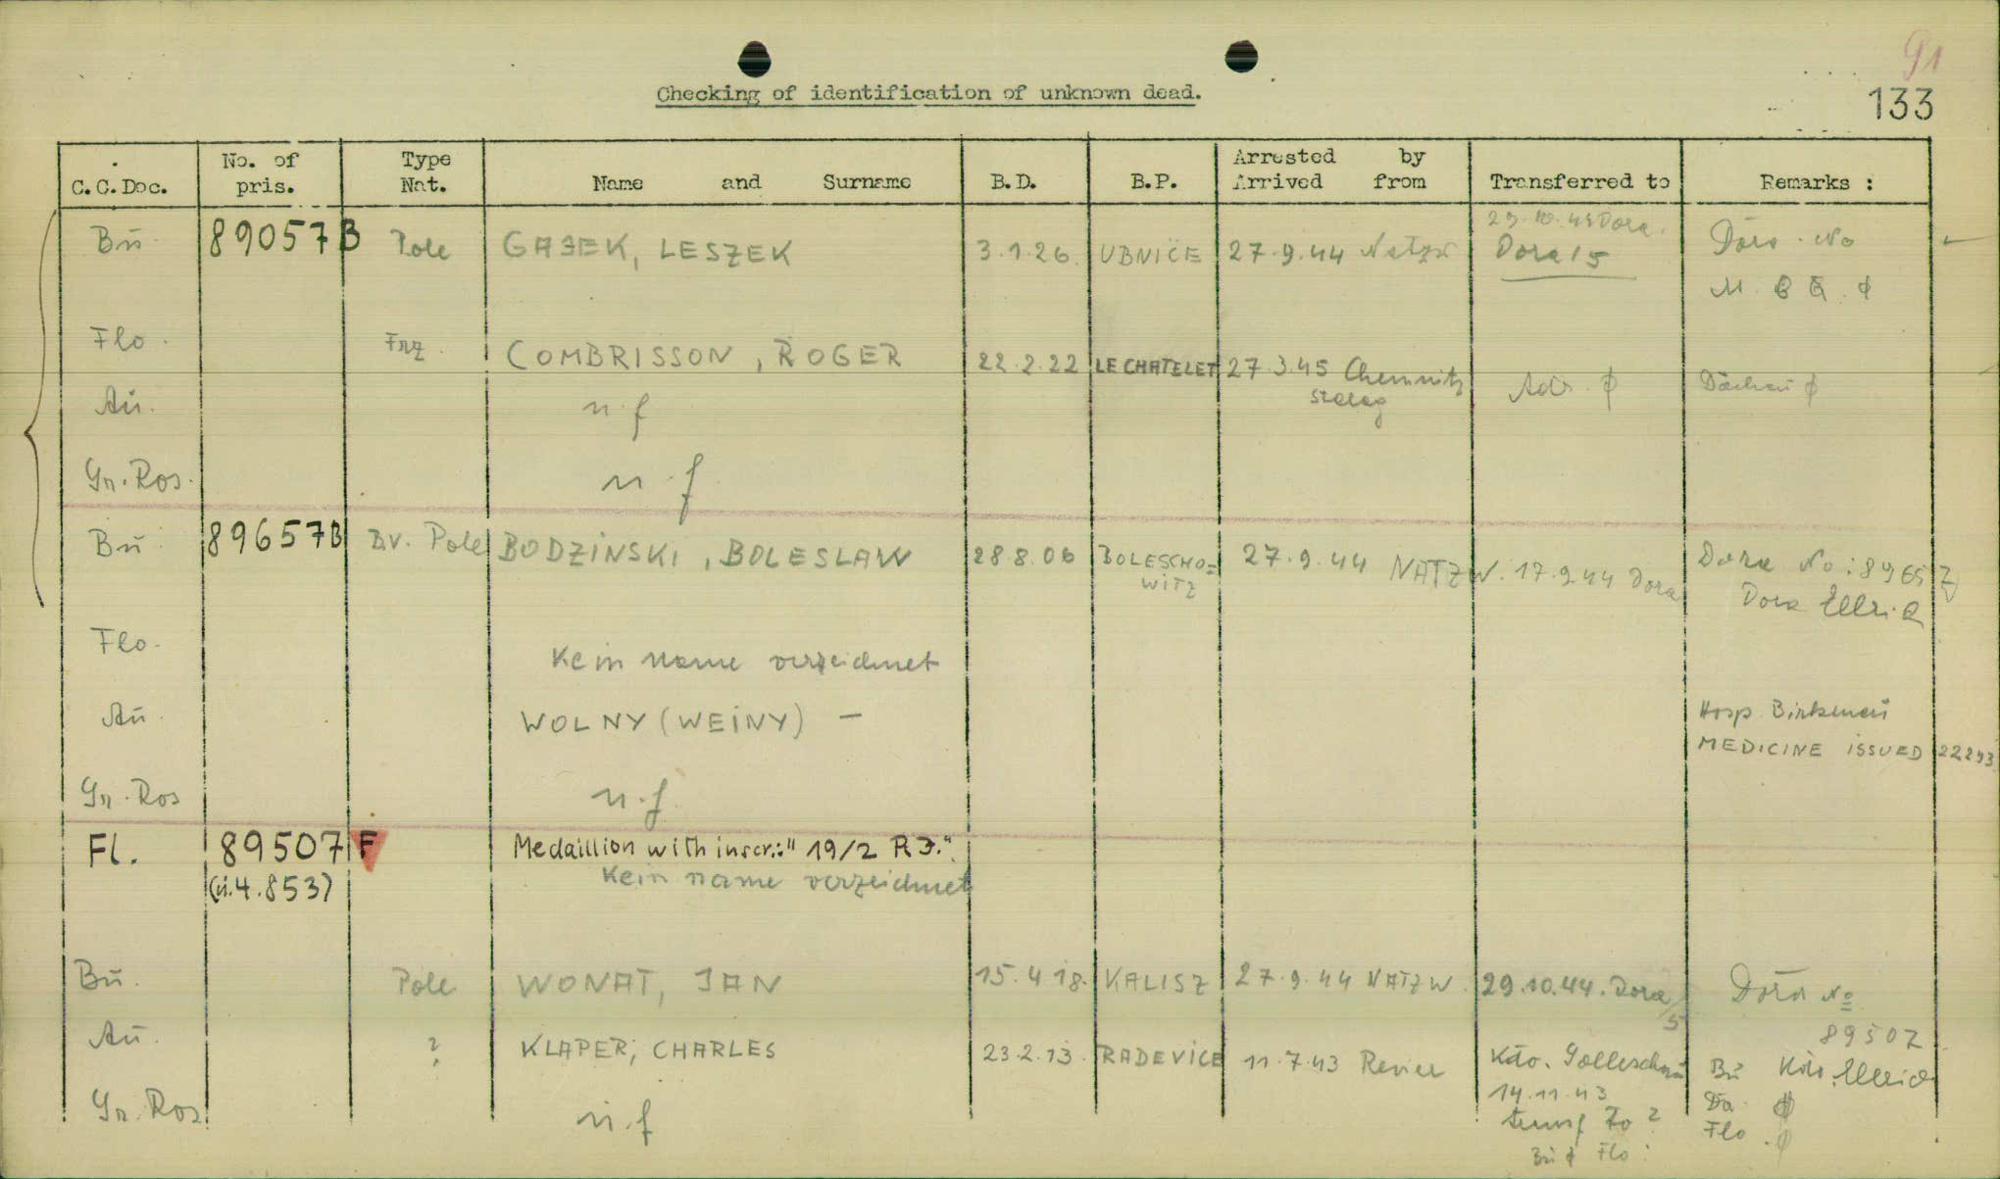 91
133
Checking of identification of unknown dead.
C.C.Doc. No. of pris. Type Nat. Name and Surname B.D. B.P. Arrested by Arrived from Transferred to Remarks :
29.10.44 Dora.
Bu 89057 B Pole GASEK, LESZEK 3.1.26. UBNICE 27.9.44 Natzw Dora/5 Dora No
M.
Flo. Frz. COMBRISSON, ROGER 22.2.22 LE CHATELET 27.3.45 Chemnitz Stalag Adr. ϕ Dachau ϕ
Au. n.f
Gr.Ros. n.f
Bu 89657B B.V. Pole BODZINSKI, BOLESLAW 28 8.06 BOLESCHO= WITZ 27.9.44 NATZW. 17.9.44 Dora Dora No: 89657
Dora Ellrich
Flo. Kein name verzeichnet
Au. WOLNY (WEINY) — Hosp Birkenau
MEDICINE ISSUED 22293
Gr.Ros n.f.
Fl. 89507 F Medaillion with inscr.: "19/2 R J.".
(U.4.853) Kein name verzeichnet
Bu. Pole WONAT, JAN 15.4.18. KALISZ 27.9.44 NATZW. 29.10.44. Dora/5 Dora No
89507
Au. ? KLAPER, CHARLES 23.2.13. RADEVICE 11.7.43 Revier Kdo. Golleschau Bu Kdo. Ellrich
14.11.43 Da ϕ
Gr.Ros. n.f transf to ? Flo. ϕ
Bu ϕ Flo.